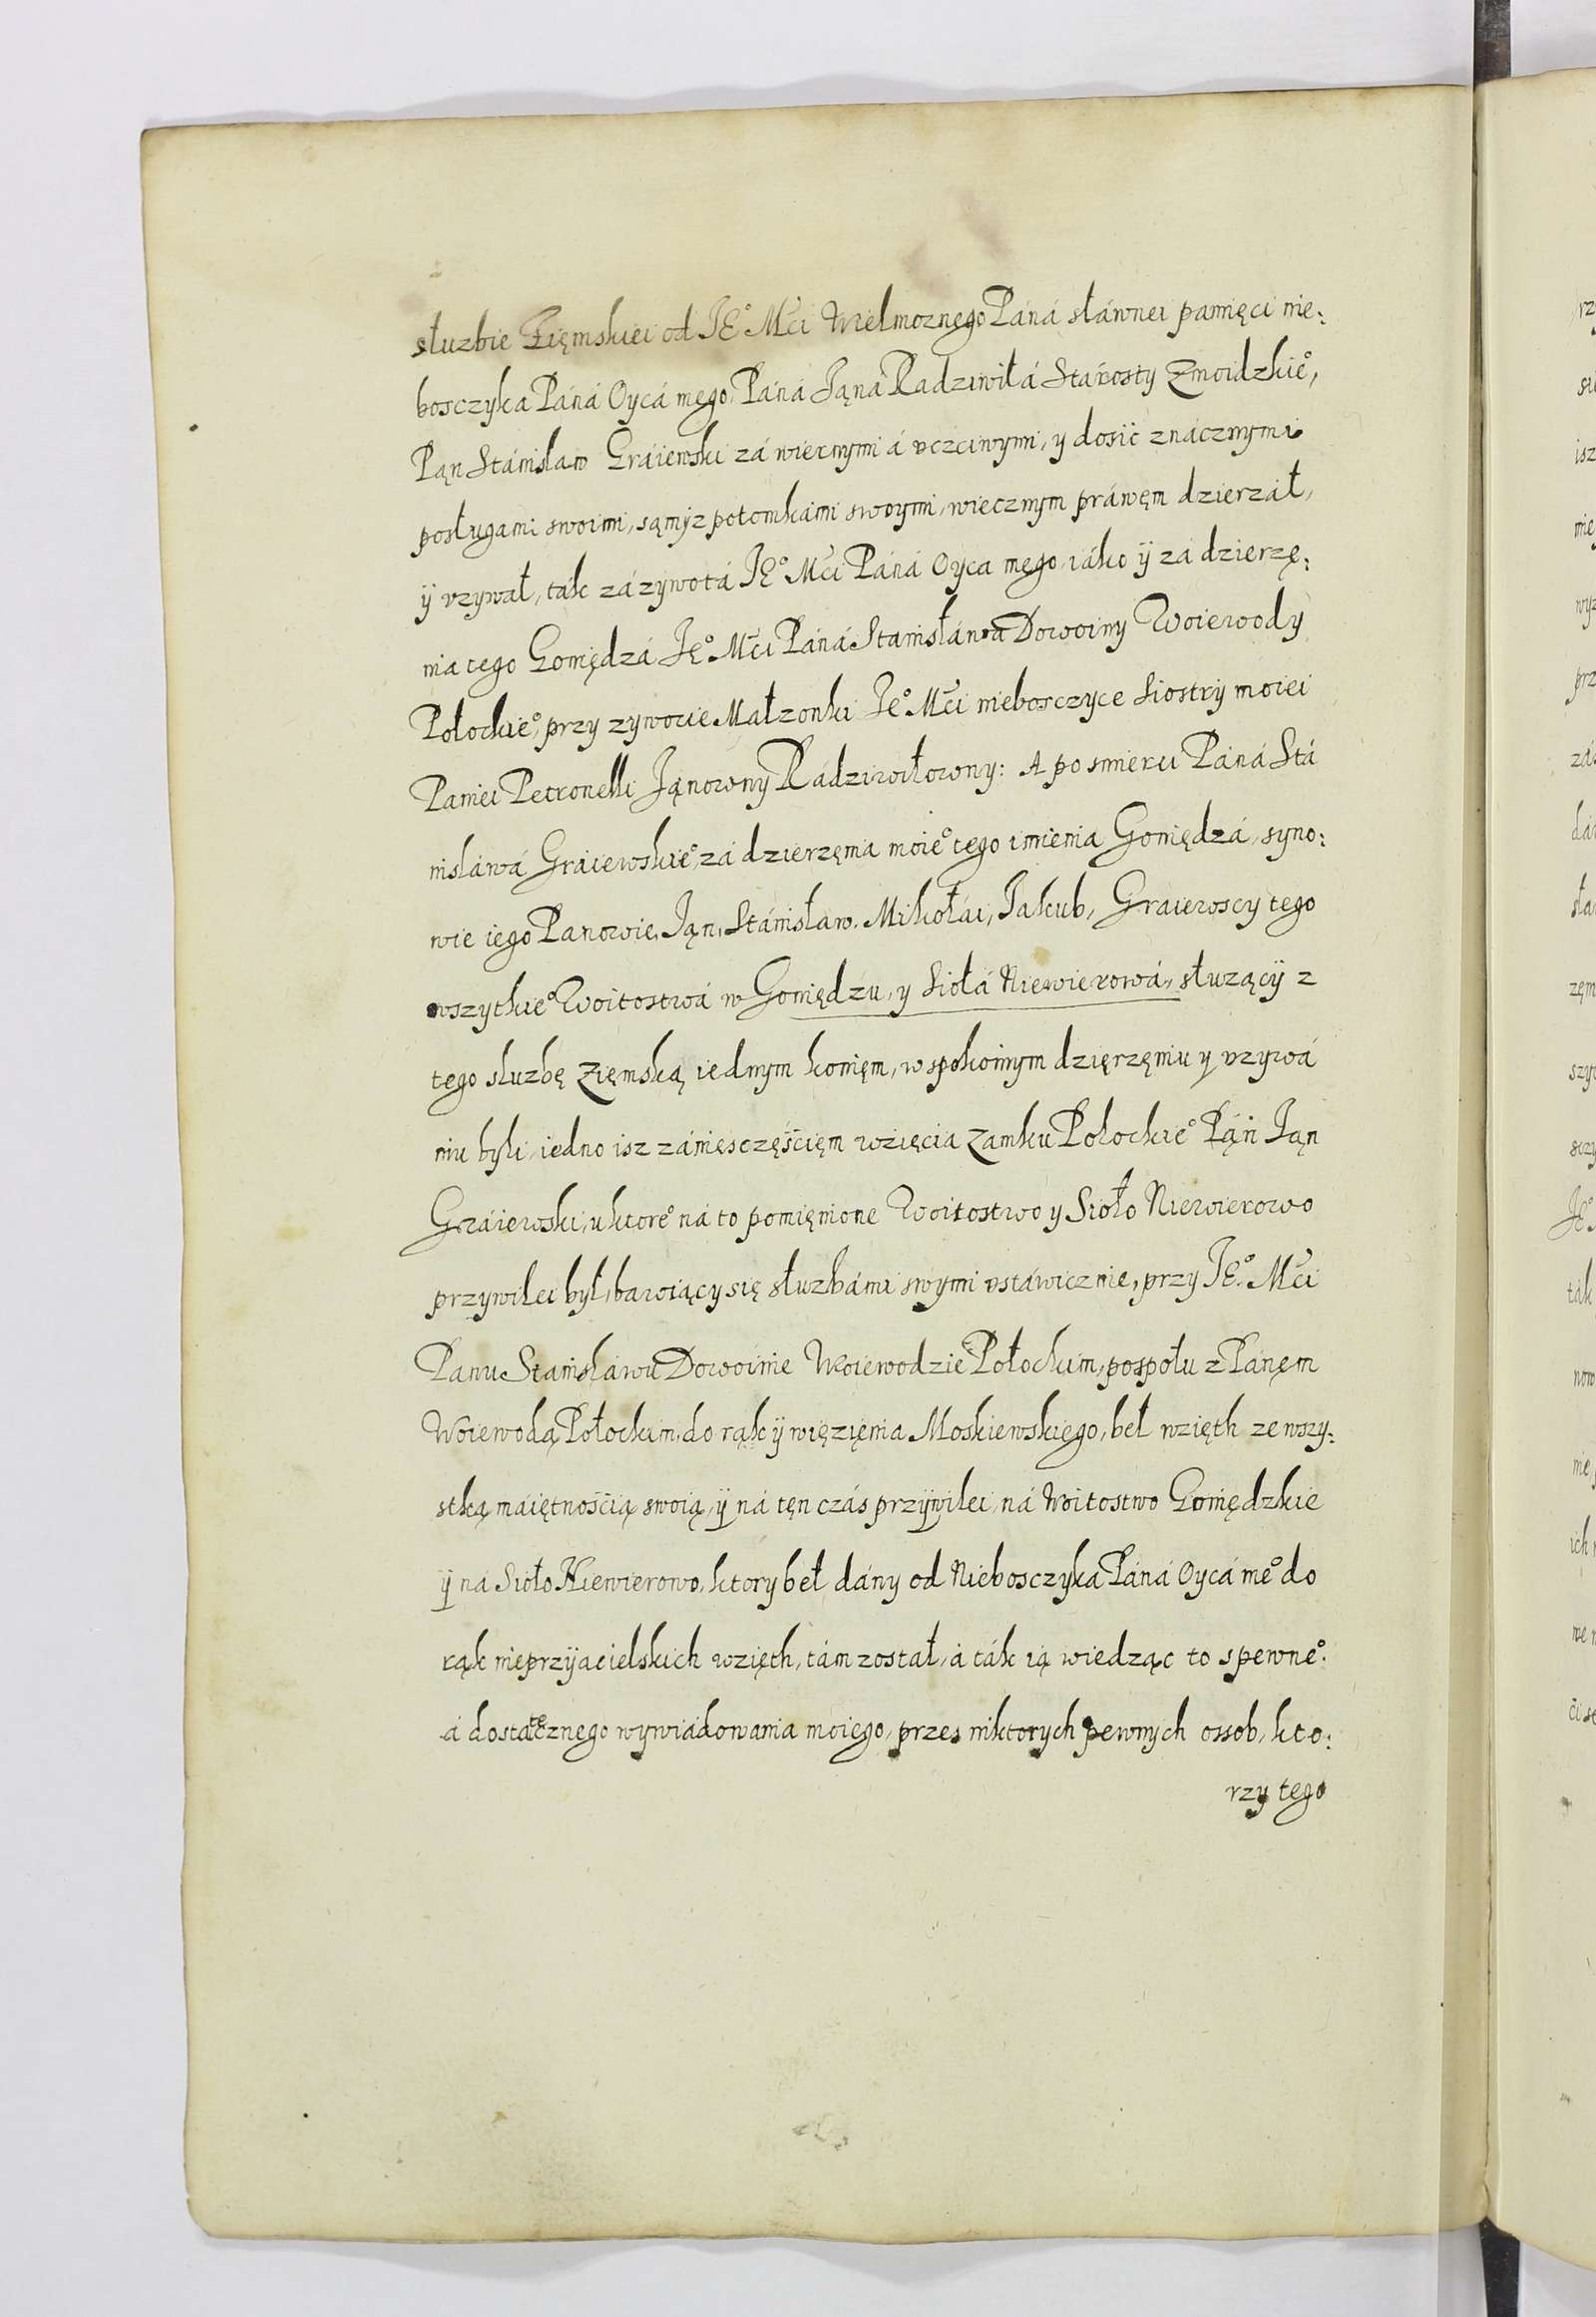 słuzbie Zięmskiei od JE° Mći Wielmoznego Páná sławnei pamięci nie:
bosczyka Páná Oycá mego, Páná Jąná Radziwiłá Stárosty Zmoidzkie°,
Pąn Stánisław Gráiewski zá wiernymi á vczciwymi, y dosić znácznymi
posługami swoimi, sąm ÿ z potomkámi swoymi, wiecznym práwęm dzierzał,
ÿ vzywał, ták zá zywotá JE° Mći Páná Oyca mego iáko ÿ zá dzierzę:
nia tego Goniędzá JE° Mći Páná Stanisłáwa Dowoiny Woiewody
Połockie°, przy zywocie Małzonki Je° Mći nieboszczyce Siostry moiei
Paniei Petronelli Jąnowny Rádziwiłowny: A po smierci Páná Stá
nisławá Gráiewskie°, zá dzierzęnia moie° tego imienia Goniędzá, syno:
wie iego Panowie, Jąn, Stánisław, Mikołái, Jakub, Graiewscy tego
wszytkie° Woitostwá w Goniędzu, y Siołá Niewierowá, słuzący z
tego sluzbę Ziemską iednym konięm, w spokoinym dzięrzęniu y vzywá
niu byli, iedno isz zá niesczęścięm wzięcia Zamku Połockie° Pąn Jąn
Gráiewski, u ktore° ná to pomięnione Woitostwo y Sioło Niewierowo
przywilei był, bawiący się słuzbámi swymi vstáwicznie, przy JE° Mći
Panu Stanisławu Dowoinie Woiewodzie Połockim, pospołu z Pánęm
Woiewodą Połockim, do rąk ÿ więzięnia Moskiewskiego, beł wzięth ze wszy:
stką máiętnością swoią, ÿ ná tęn czás przywilei ná Woitostwo Goniędzkie
ÿ ná Sioło Niewierowo, ktory beł dány od Nieboszczyka Páná Oycá me° do
rąk nieprzyiacielskich wzięth, tám został, á ták ią wiedząc to spewne°:
á dostatecznego wywiádowania moiego, przes niktorych pewnych ossob, kto:
rzy tego